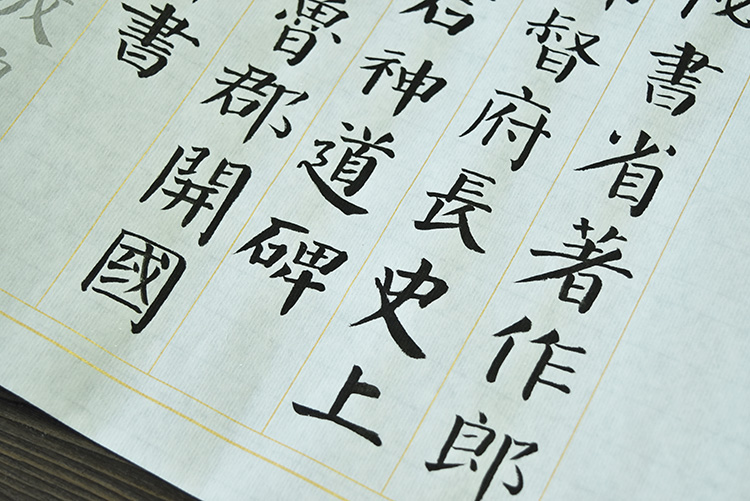 書省著作郎
督府長史上
君神道碑
魯郡開國
書